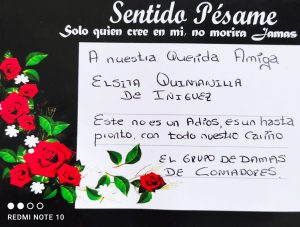 Sentido Pésame
Solo quien cree en mi, no morira Jamas
A nuestra Querida Amiga
Elsita Quintanilla
De Iñiguez
Este no es un Adios, es un hasta
pronto, con todo nuestro Cariño
El Grupo de Damas
de Contadores.
REDMI NOTE 10